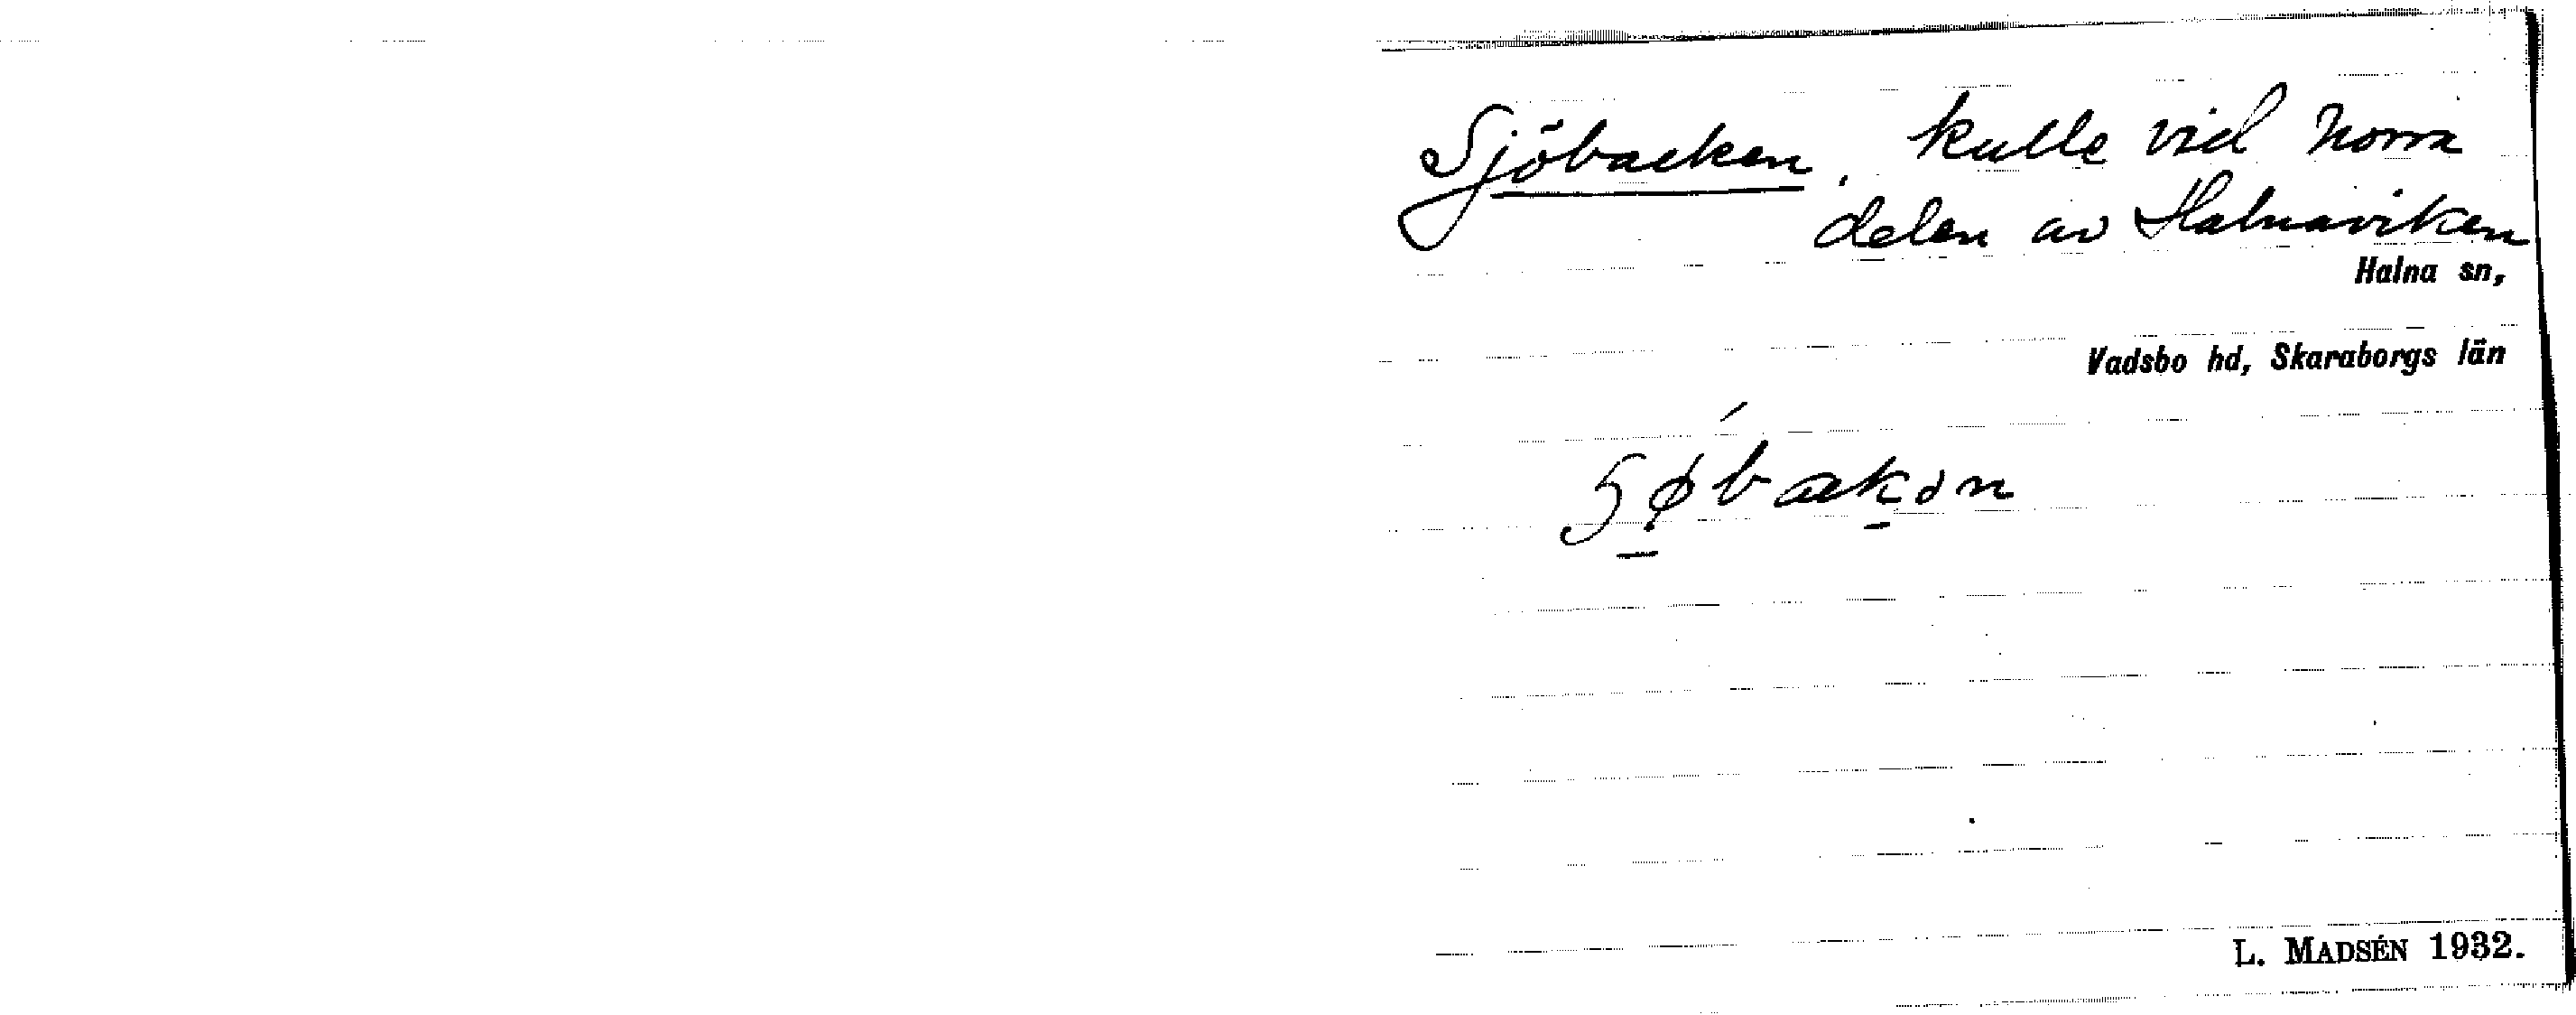 Sjöbacken, kulle vid norra
delen av Halnaviken
Halna sn,
Vadsbo hd, Skaraborgs län
L. MADSÉN 1932.